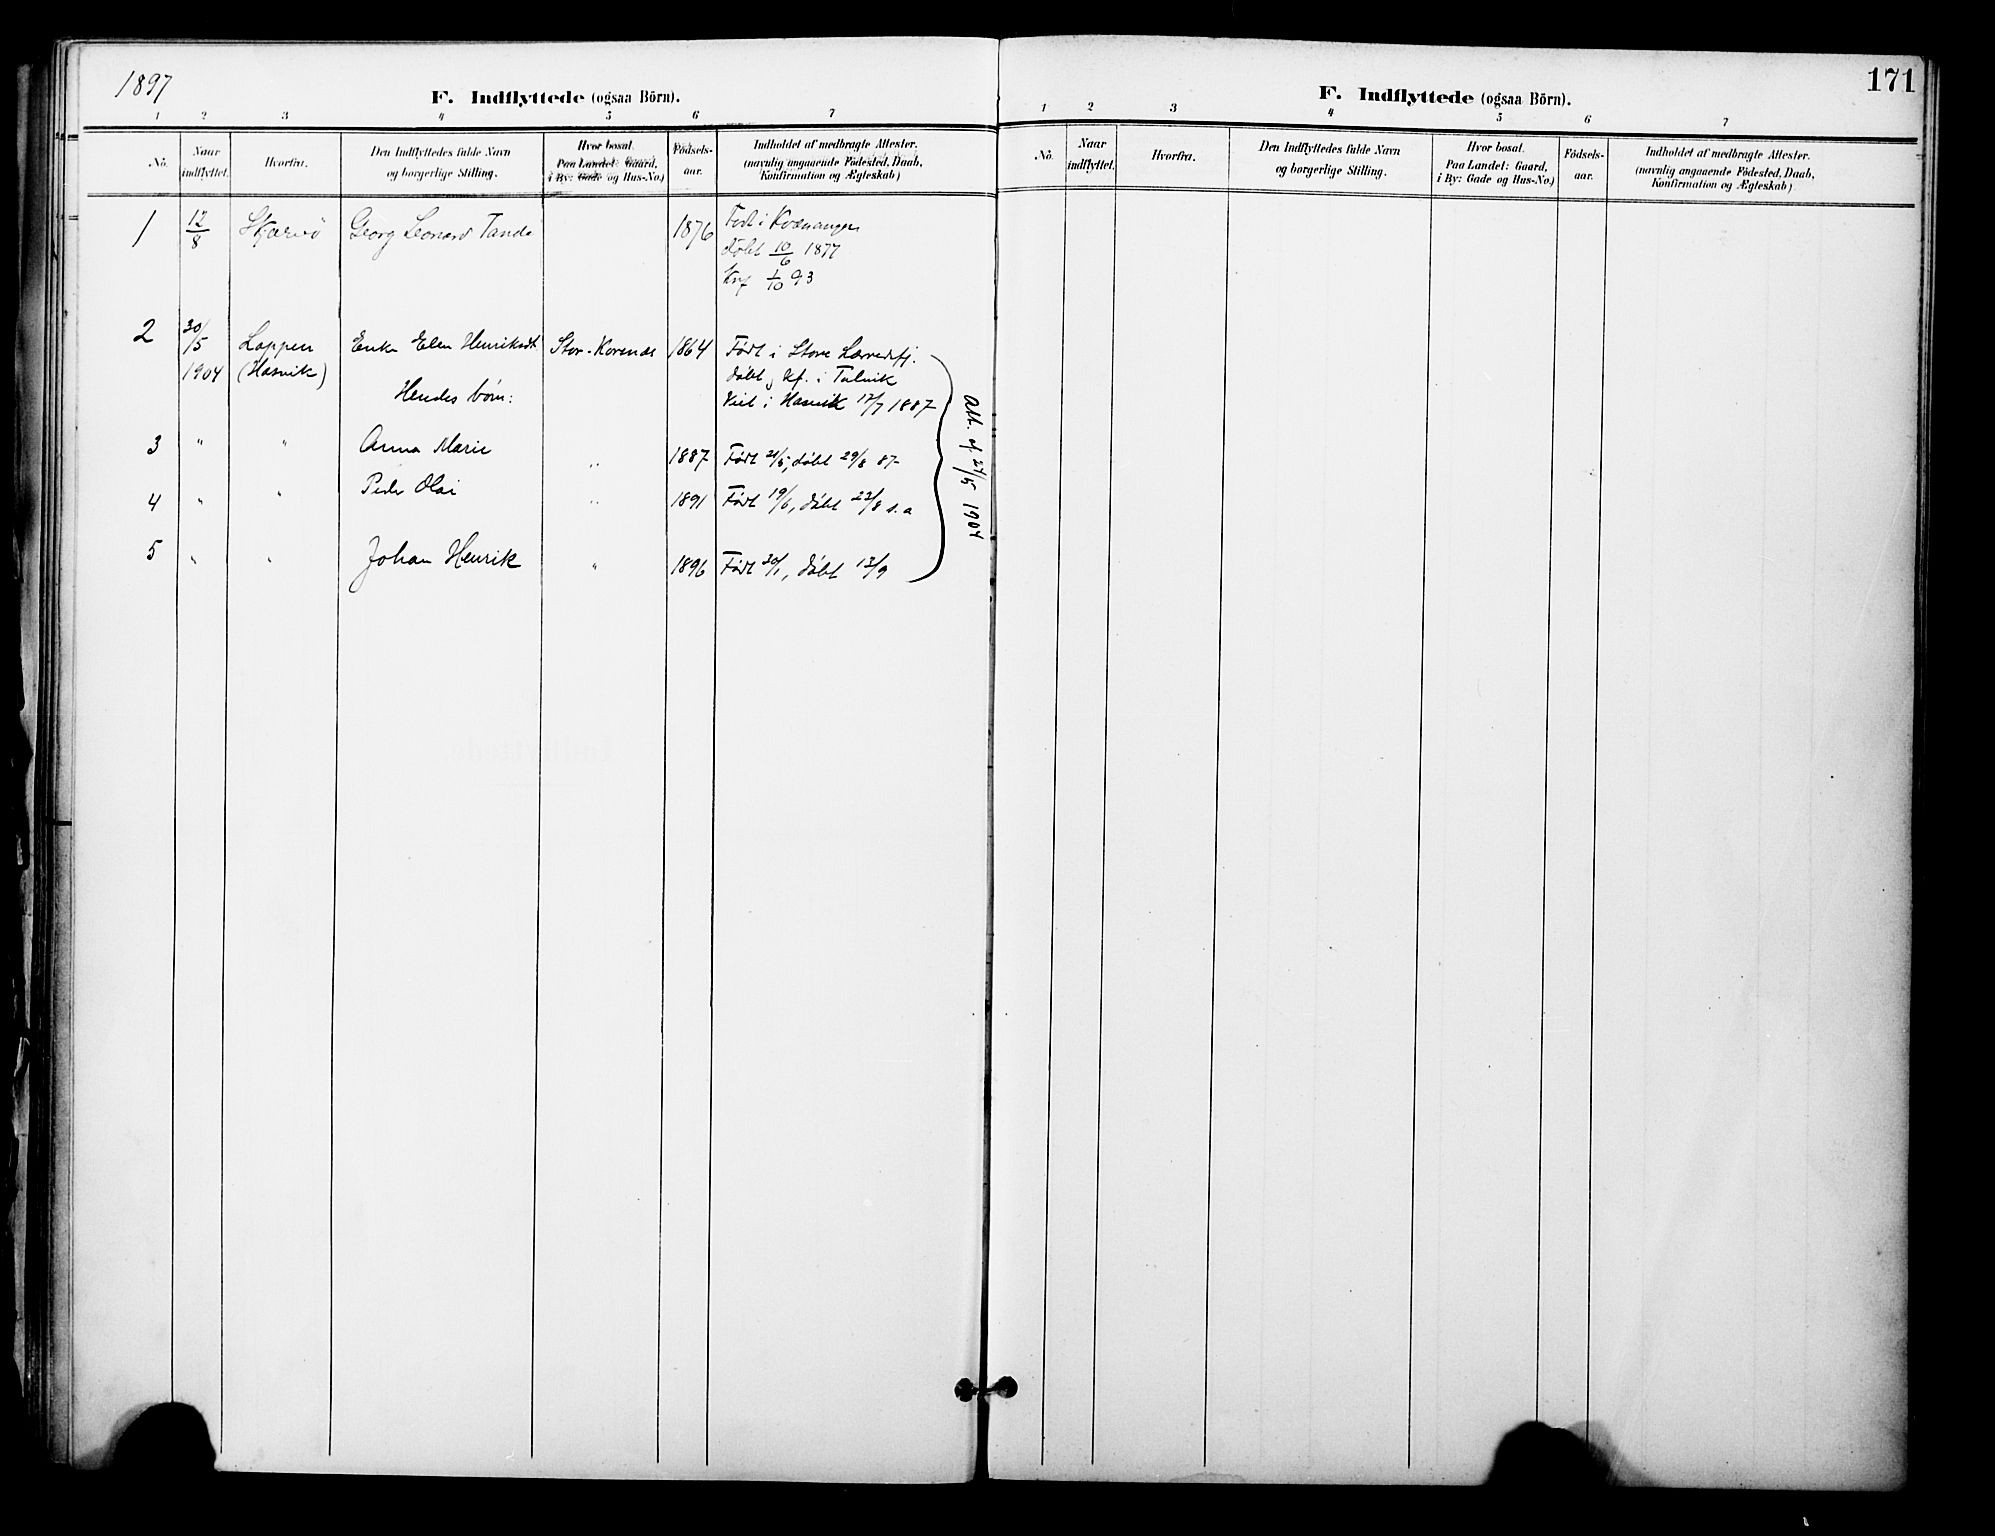 1897
F. Indflyttede (ogsaa Börn).
1 2 3 4 5 6 7
No. Naar indflyttet. Hvorfra. Den Indflyttedes fulde Navn og borgerlige Stilling. Hvor bosat. Paa Landet: Gaard, i By: Gade og Hus-No.) Födsels-aar. Indholdet af medbragte Attester. (navnlig angaaende Födested, Daab, Konfirmation og Ægteskab)
1 12/8 Skjærvö Georg Leonard Tande 1876 Født i Kvænangen
døbt 10/6 1877
Knf 1/10 93
2 30/5 Loppen Enke Elen Henriksdt Stor-Korsnæs 1864 Født i Store Lærredsfj.
1904 (Hasvik) døbt og kf. i Talvik
Hendes børn: Viet i Hasvik 17/7 1887
3 " " Anna Marie " 1887 Født 21/5, døbt 29/8 87
4 " " Peder Olai " 1891 Født 19/6, døbt 23/8 s.a
5 " " Johan Henrik " 1896 Født 30/1, døbt 13/9
Att. af 24/5 1904
171
F. Indflyttede (ogsaa Börn).
1 2 3 4 5 6 7
No. Naar indflyttet. Hvorfra. Den Indflyttedes fulde Navn og borgerlige Stilling. Hvor bosat. Paa Landet: Gaard, i By: Gade og Hus-No.) Födsels-aar. Indholdet af medbragte Attester. (navnlig angaaende Födested, Daab, Konfirmation og Ægteskab)